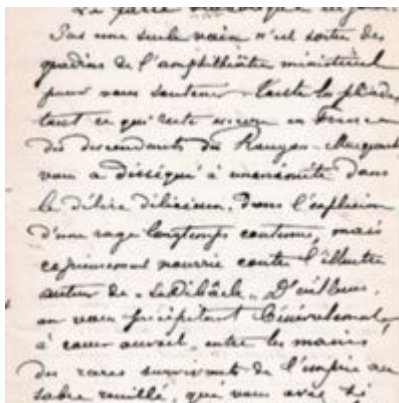 Pas une seule main n'est sortie des
gradins de l'amphithéâtre ministériel
pour vous soutenir. Toute la pléiade,
tout ce qui reste encore en France
des descendants des Rougon-Macquart
vous a disséqué à unanimité dans
le délire délicieux, dans l'explosion
d'une rage longtemps contenue, mais
copieusement nourrie contre l'illustre
auteur de "La Débâcle". D'ailleurs,
en vous précipitant bénévolement,
à cœur ouvert, entre les mains
des rares survivants de l'empire au
sabre rouillé, que vous avez si